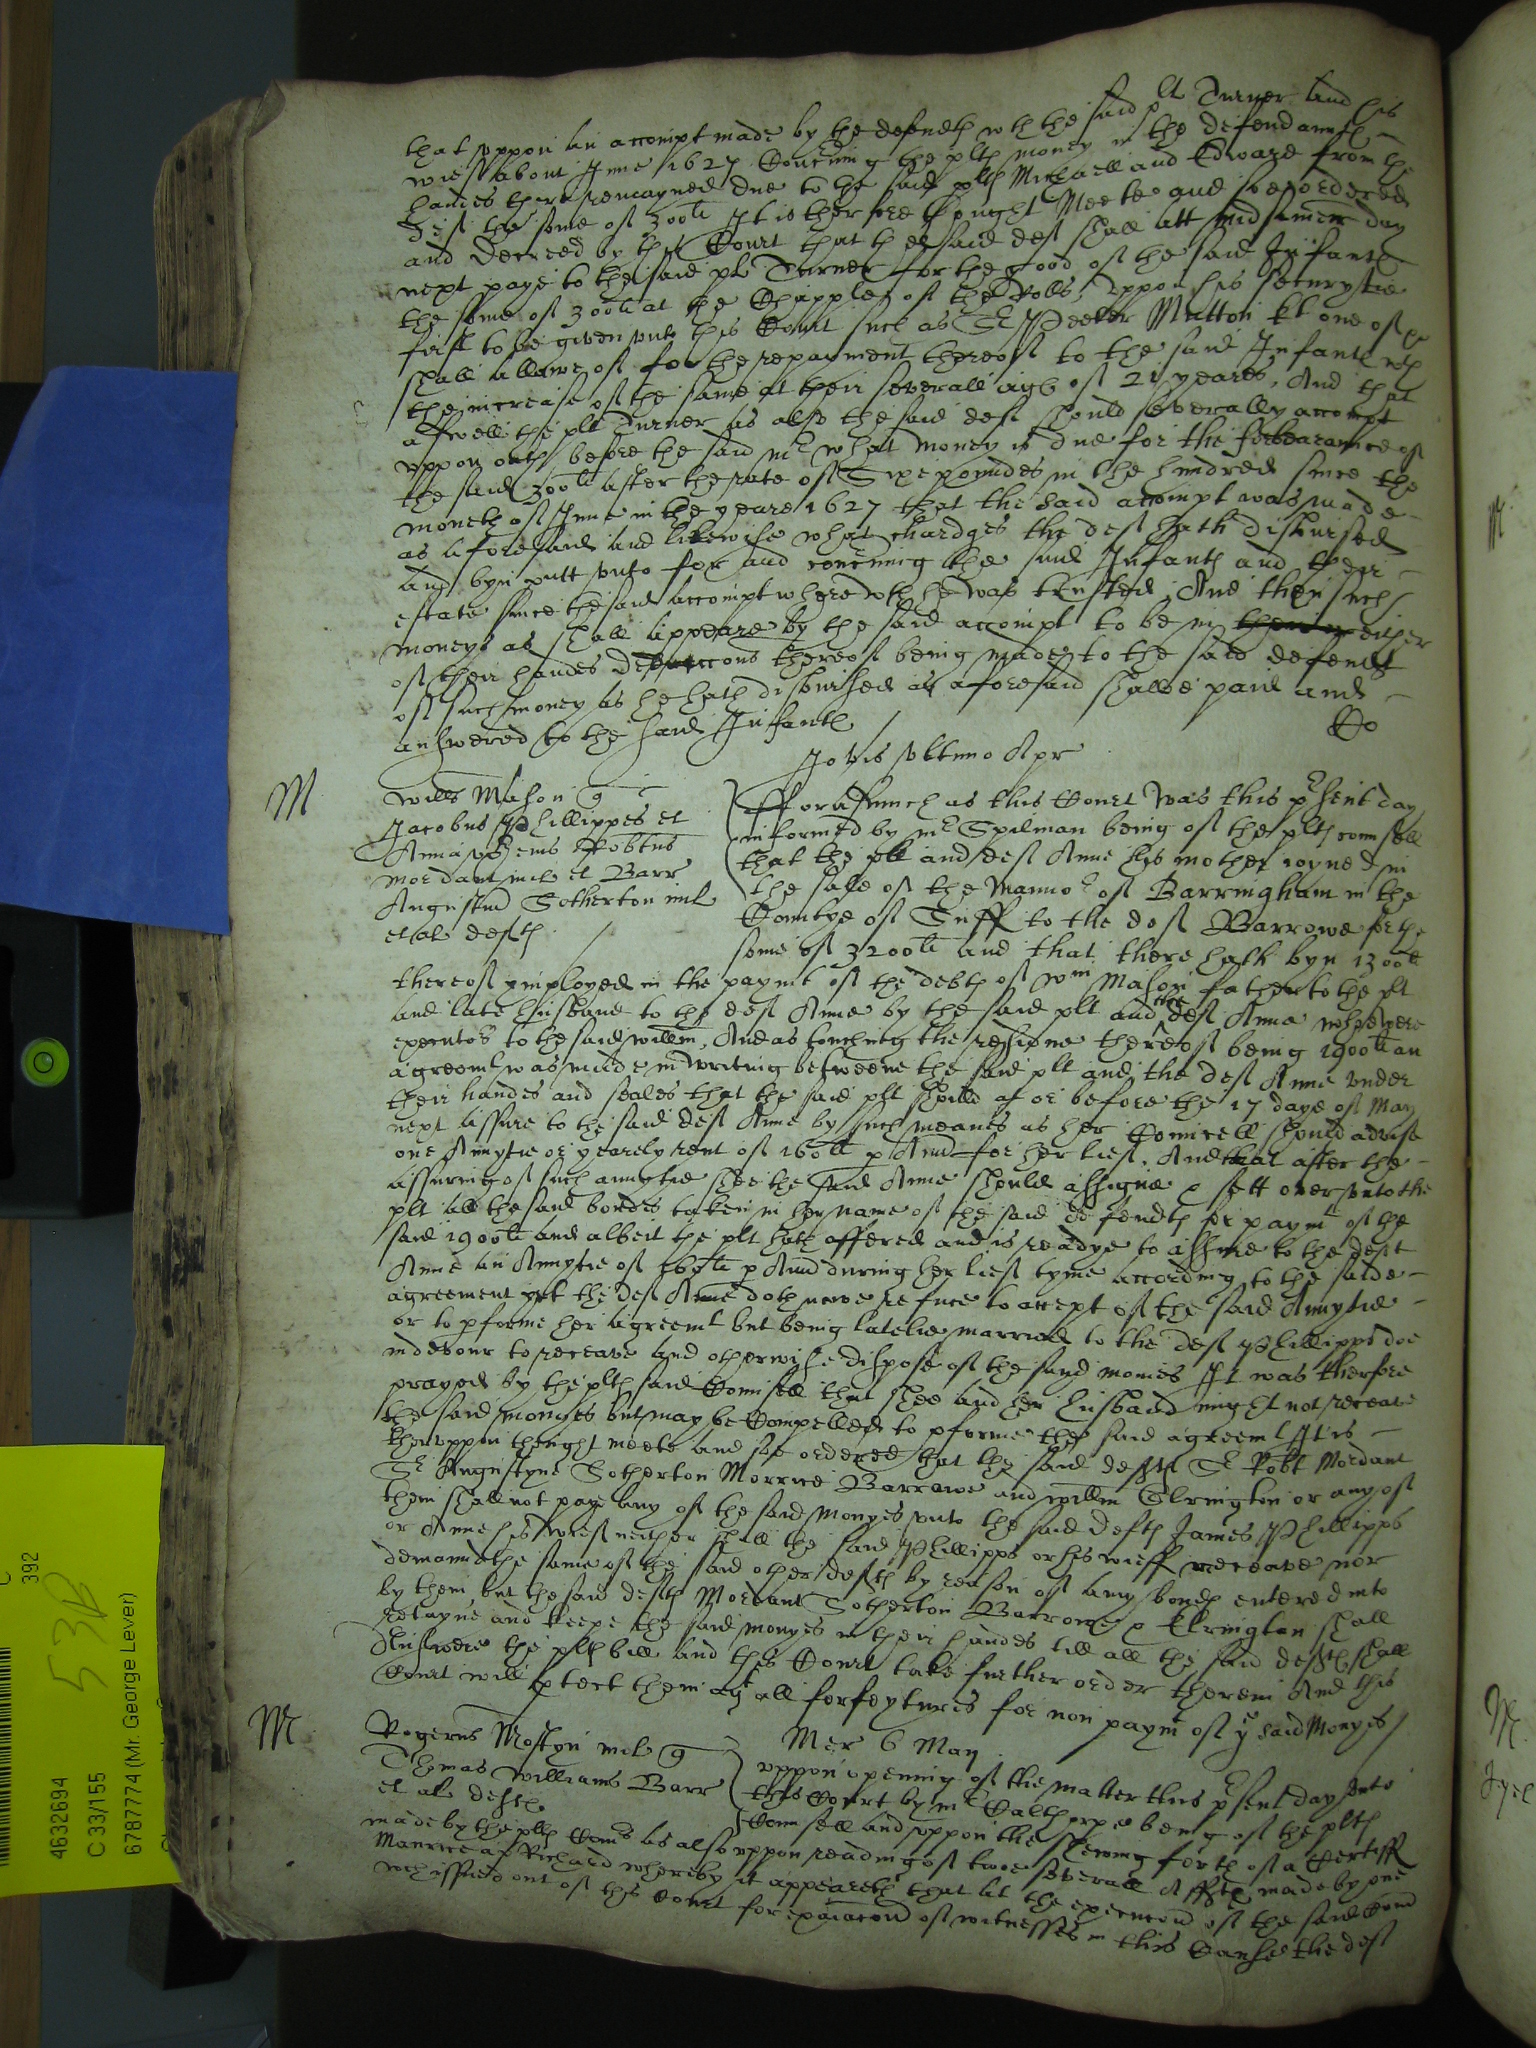 that uppon an accompt made by the defendts wth the said plt Turner and his
wief about June 1627 Concning the plts money in the defendants
handes there remayned due to the said plts Michaell and Edward from the
deft the some of 300li It is therfore thought Meete and soe ordered
and decreed by this Court that the said deft shall att midsomer day
next paye to the said plt Turner for the good of the said Infants
the some of 300li at the Chappell of the Rolls, uppon his securytie
first to be given unto this Court such as Sr Peeter Mutton kt one of ye
shall allowe of for the repayment thereof to the said Infants wth
the increase of the same at their severall ages of 21 yeares, And that
aswell the plt Turner as also the said deft should severally accompt
uppon oath before the said Mr what money is due for the forbearance of
the said 300li after the rate of Sixe poundes in the hundred since the
moneth of June in the yeare 1627 that the said accompt was made
as aforesaid and likewise what chardges the deft hath disbursed
and byn putt unto for and concning the said Infants and their
estate since the said accompt wherewth he was trusted, And then such
moneys as shall appeare by the said accompt to be in either
of their handes deduccons thereof being made to the said defendt
of such money as he hath disbursed as aforesaid shalbe paid and
answered to the said Infants /
Co
Jovis ultimo Apr
M
Willm Mason q
Jacobus Phillippes et
Anna uxr eius Robtus
Mordant mil et Barr
Augustin Sotherton mil
et al defts /
fforasmuch as this Court was this psent day
informed by Mr Spilman being of the plts counsell
that the plt and deft Anne his mother joyned in
the sale of the Mannor of Barringham in the
Countye of Suff to the deft Barrowe for the
some of 3200li and that there hath byn 1300li
thereof ymployed in the paymt of the debts of Wm Mason father to the plt
and late husband to the deft Anne by the said plt and the deft Anne who were
executors to the said Willm, And as touching the residue thereof being 1900li an
agreemt was made in writing betweene the said plt and the deft Anne under
their handes and seales that the said plt should at or before the 17 daye of May
next assure to the said deft Anne by such meanes as her Councell should advise
one Annytie or yearely rent of 160li p Ann for her lief, And that after the
assuring of such annytie shee the said Anne should assigne & sett over unto the
plt all the said bondes taken in her name of the said defendts for paymt of the
said 1900li and albeit the plt hath offered and is readye to assure to the deft
Anne an Annytie of 160li p Ann during her lief tyme according to the saide
agreement yet the deft Anne doth nowe refuse to accept of the said Annytie
or to pforme her agreemt but being latelie married to the deft Phillipps doe
indevour to receave and otherwise dispose of the said monies It was therfore
prayed by the plts said Counsell that shee and her husband might not receave
the said monyes but may be Compelled to pforme the said agreemt It is
theruppon thought meete and soe ordered that the said defts Sr Robt Mordant
Sr Augustyne Sotherton Morrice Barrowe and Willm Elrington or any of
them shall not paye any of the said Monyes unto the said defts James Phillipps
or Anne his wief neither shall the said Phillipps or his wieff receave nor
demaund the same of the said other defts by reason of any bonds entered into
by them but the said defts Mordant Sotherton Barrowe & Elrington shall
retayne and keepe the said monyes in their handes till all the said defts shall
Answere the plts bill and this Court take further order therein And this
Court will ptect them agt all forfeytures for non paymt of ye said Monyes /
M
Mer 6 May
Rogerus Mostyn mil q
Thomas Williams Barr
et al defts
uppon opening of the matter this psent day unto
this Court by Mr Calthorpe being of the plts
Counsell and uppon the shewing forth of a Certiff
made by the plts Comrs as also uppon reading of twoe severall Affts made by one
Maurice ap Richard whereby it appeareth that at the execucon of the said Com
wch issued out of this Court for exaiacon of witnesses in this Cause the deft